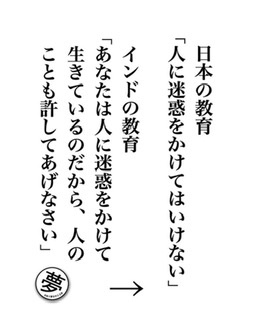 日本の教育
「人に迷惑をかけてはいけない」
→
インドの教育
「あなたは人に迷惑をかけて
生きているのだから、人の
ことも許してあげなさい」
→
夢